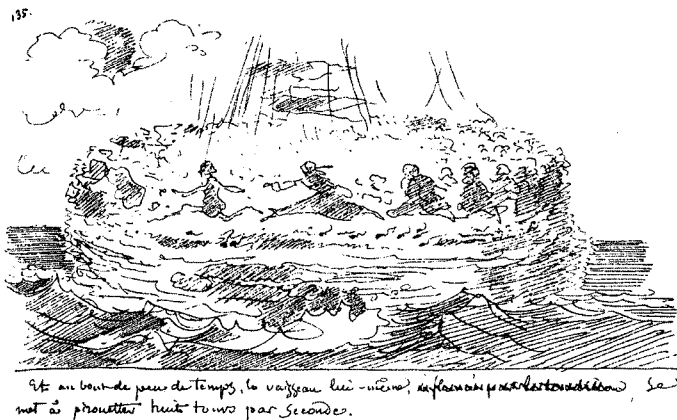 135.
Et au bout de peu de temps, le vaisseau lui-même, se
met à pirouetter huit tours par seconde.